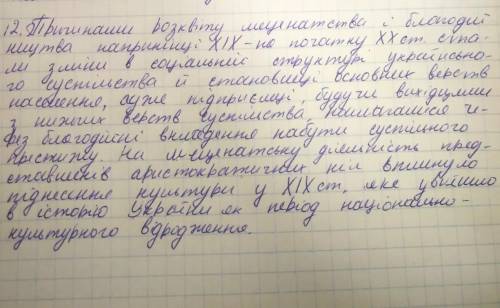 12. Причинами розквіту меценатства і благодій
ництва наприкінці XIX - на початку XX ст. ста-
ли зміни в соціальній структурі українсько-
го суспільства й становищі основних верств
населення, адже підприємці, будучи вихідцями
з нижчих верств суспільства, намагалися че-
рез благодійні вкладення набути суспільного
престижу. На меценатську діяльність пред-
ставників аристократичних кіл вплинуло
піднесення культури у XIX ст., яке увійшло
в історію України як період національно-
культурного відродження.